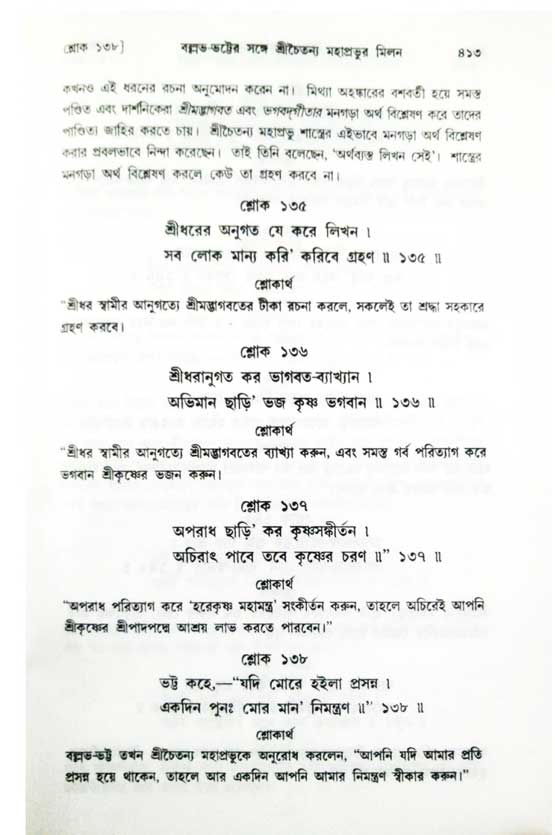 [শ্লোক ১৩৮]
বল্লভ-ভট্টের সঙ্গে শ্রীচৈতন্য মহাপ্রভুর মিলন
৪১৩
কখনও এই ধরনের রচনা অনুমোদন করেন না। মিথ্যা অহঙ্কারের বশবর্তী হয়ে সমস্ত
পণ্ডিত এবং দার্শনিকেরা শ্রীমদ্ভাগবত এবং ভগবদ্গীতার মনগড়া অর্থ বিশ্লেষণ করে তাদের
পাণ্ডিত্য জাহির করতে চায়। শ্রীচৈতন্য মহাপ্রভু শাস্ত্রের এইভাবে মনগড়া অর্থ বিশ্লেষণ
করার প্রবলভাবে নিন্দা করেছেন। তাই তিনি বলেছেন, 'অর্থব্যস্ত লিখন সেই'। শাস্ত্রের
মনগড়া অর্থ বিশ্লেষণ করলে কেউ তা গ্রহণ করবে না।
শ্লোক ১৩৫
শ্রীধরের অনুগত যে করে লিখন।
সব লোক মান্য করি' করিবে গ্রহণ ॥ ১৩৫ ॥
শ্লোকার্থ
"শ্রীধর স্বামীর আনুগত্যে শ্রীমদ্ভাগবতের টীকা রচনা করলে, সকলেই তা শ্রদ্ধা সহকারে
গ্রহণ করবে।
শ্লোক ১৩৬
শ্রীধরানুগত কর ভাগবত-ব্যাখ্যান।
অভিমান ছাড়ি' ভজ কৃষ্ণ ভগবান ॥ ১৩৬ ॥
শ্লোকার্থ
"শ্রীধর স্বামীর আনুগত্যে শ্রীমদ্ভাগবতের ব্যাখ্যা করুন, এবং সমস্ত গর্ব পরিত্যাগ করে
ভগবান শ্রীকৃষ্ণের ভজন করুন।
শ্লোক ১৩৭
অপরাধ ছাড়ি' কর কৃষ্ণসঙ্কীর্তন।
অচিরাৎ পাবে তবে কৃষ্ণের চরণ ॥" ১৩৭ ॥
শ্লোকার্থ
"অপরাধ পরিত্যাগ করে 'হরেকৃষ্ণ মহামন্ত্র' সংকীর্তন করুন, তাহলে অচিরেই আপনি
শ্রীকৃষ্ণের শ্রীপাদপদ্মে আশ্রয় লাভ করতে পারবেন।"
শ্লোক ১৩৮
ভট্ট কহে,—"যদি মোরে হইলা প্রসন্ন।
একদিন পুনঃ মোর মান' নিমন্ত্রণ ॥" ১৩৮ ॥
শ্লোকার্থ
বল্লভ-ভট্ট তখন শ্রীচৈতন্য মহাপ্রভুকে অনুরোধ করলেন, "আপনি যদি আমার প্রতি
প্রসন্ন হয়ে থাকেন, তাহলে আর একদিন আপনি আমার নিমন্ত্রণ স্বীকার করুন।"